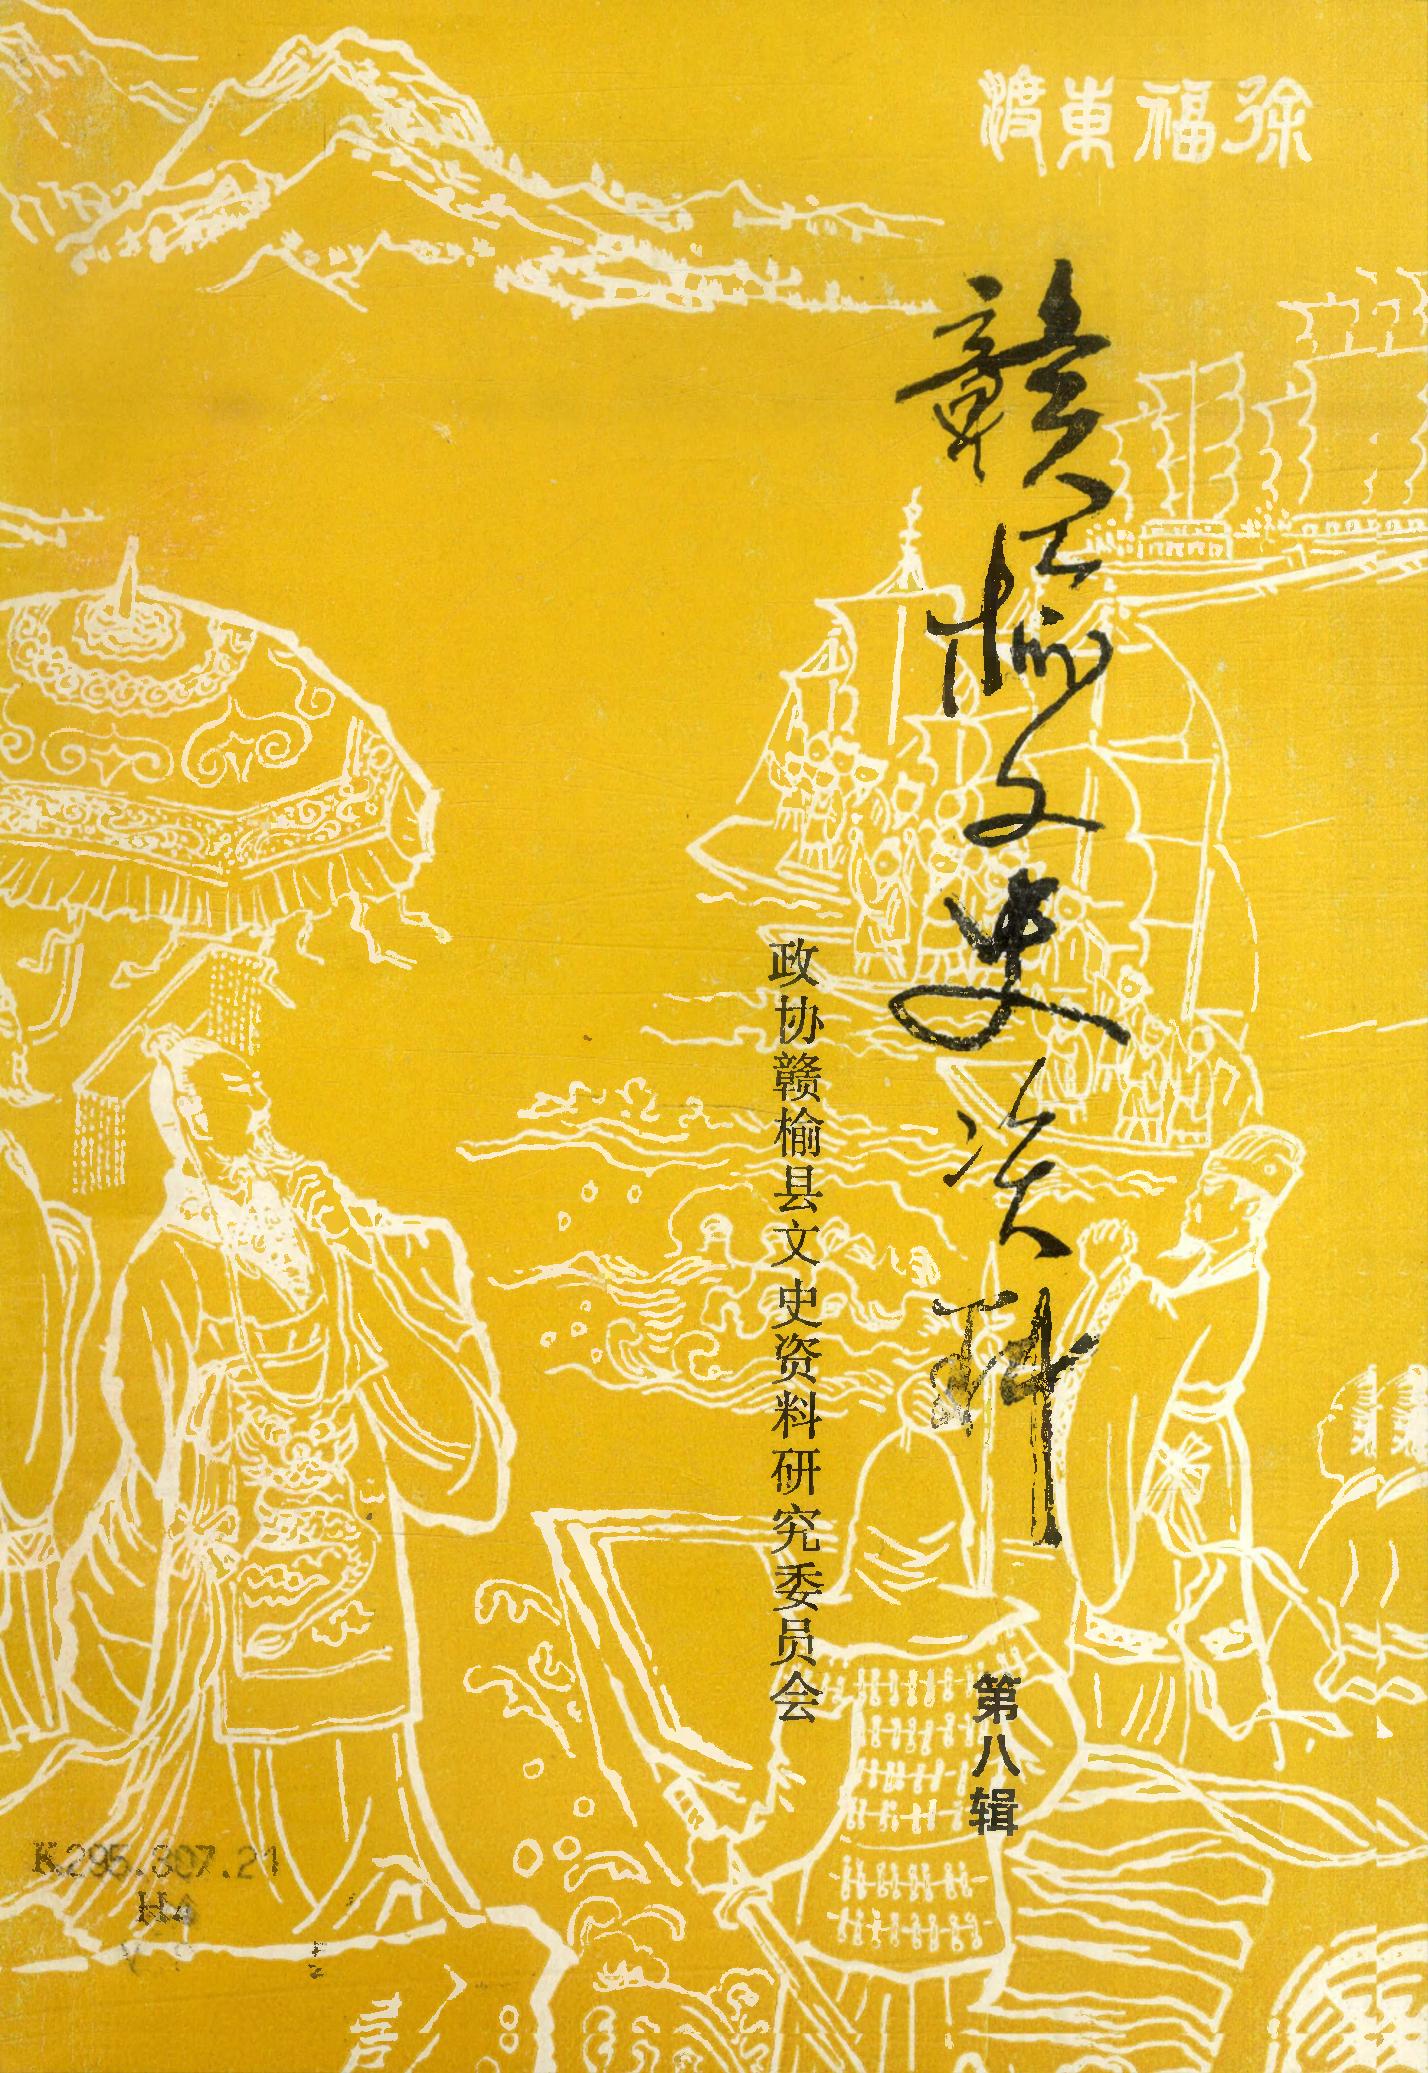 徐福東渡
赣榆文史资料
政协赣榆县文史资料研究委员会
第八辑
K295.307.21
H4